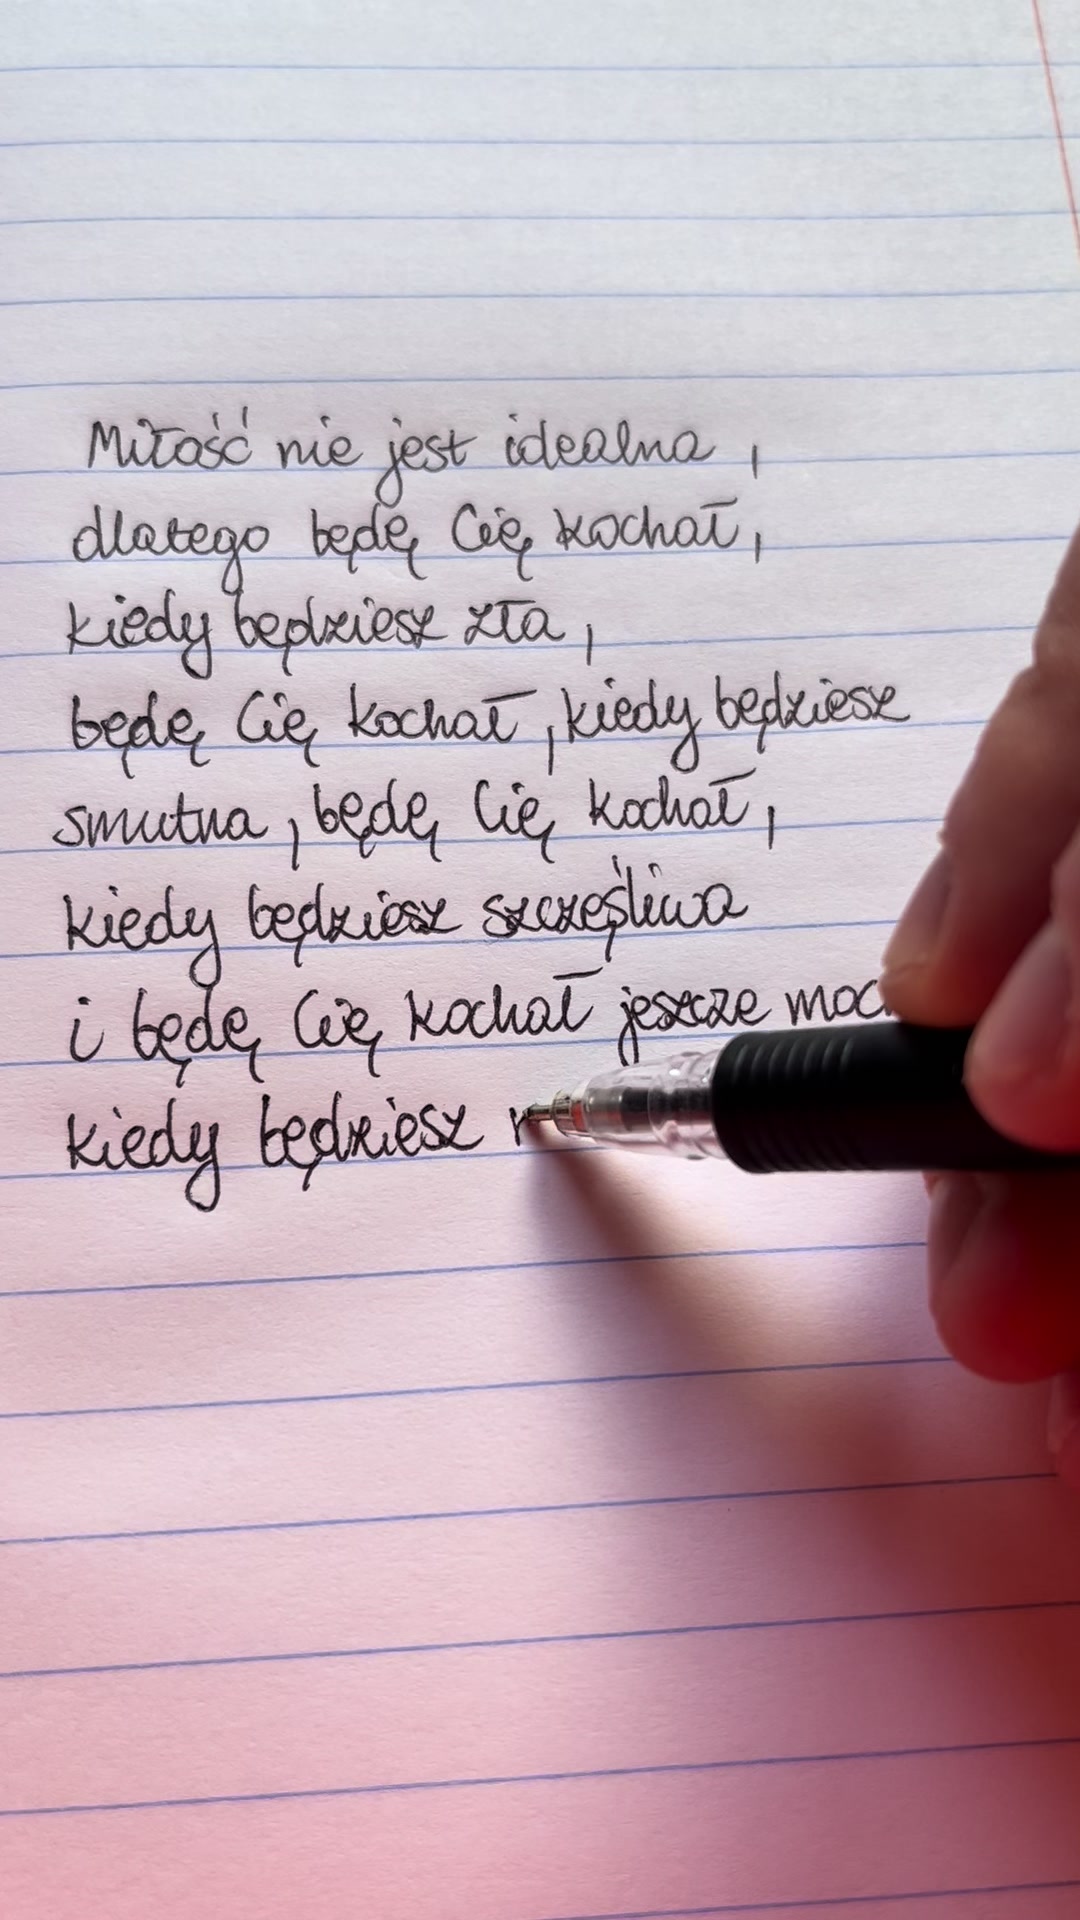 Miłość nie jest idealna,
dlatego będę Cię kochał,
kiedy będziesz zła,
będę Cię kochał, kiedy będziesz
smutna, będę Cię kochał,
kiedy będziesz szczęśliwa
i będę Cię kochał jeszcze
kiedy będziesz